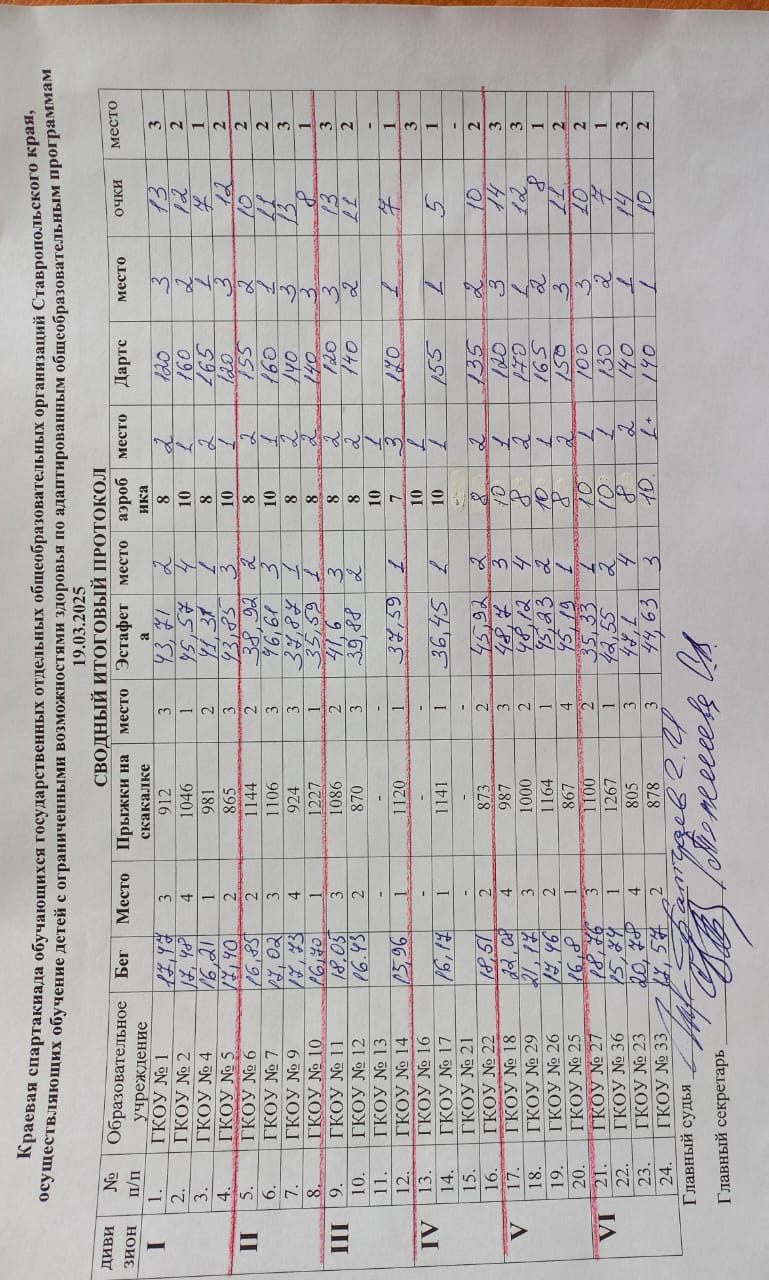 Краевая спартакиада обучающихся государственных отдельных общеобразовательных организаций Ставропольского края,
осуществляющих обучение детей с ограниченными возможностями здоровья по адаптированным общеобразовательным программам
19.03.2025
СВОДНЫЙ ИТОГОВЫЙ ПРОТОКОЛ
диви зион № п/п Образовательное учреждение Бег Место Прыжки на скакалке место Эстафет а место аэроб ика место Дартс место очки место
I 1. ГКОУ № 1 17,47 3 912 3 43,71 2 8 2 120 3 13 3
2. ГКОУ № 2 17,48 4 1046 1 45,57 4 10 1 160 2 12 2
3. ГКОУ № 4 16,21 1 981 2 41,31 1 8 2 165 1 7 1
4. ГКОУ № 5 17,40 2 865 3 43,85 3 10 1 120 3 12 2
II 5. ГКОУ № 6 16,85 2 1144 2 38,92 2 8 2 155 2 10 2
6. ГКОУ № 7 17,02 3 1106 3 46,61 3 10 1 160 1 11 2
7. ГКОУ № 9 17,73 4 924 3 37,87 1 8 2 140 3 13 3
8. ГКОУ № 10 16,70 1 1227 1 35,59 1 8 2 140 3 8 1
III 9. ГКОУ № 11 18.05 3 1086 2 41,6 3 8 2 120 3 13 3
10. ГКОУ № 12 16.43 2 870 3 39,88 2 8 2 140 2 11 2
11. ГКОУ № 13 - - - 10 1 -
12. ГКОУ № 14 15,96 1 1120 1 37,59 1 7 3 170 1 7 1
IV 13. ГКОУ № 16 - - - 10 1 3
14. ГКОУ № 17 16,17 1 1141 1 36,45 1 10 1 155 1 5 1
15. ГКОУ № 21 - - - -
16. ГКОУ № 22 18,51 2 873 2 45,92 2 8 2 135 2 10 2
V 17. ГКОУ № 18 22,08 4 987 3 48,7 3 10 1 120 3 14 3
18. ГКОУ № 29 21,17 3 1000 2 48,12 4 8 2 170 1 12 3
19. ГКОУ № 26 17,46 2 1164 1 45,23 2 10 1 165 2 8 1
20. ГКОУ № 25 16,8 1 867 4 45,19 1 8 2 150 3 11 2
VI 21. ГКОУ № 27 18,76 3 1100 2 35,33 1 10 1 100 3 10 2
22. ГКОУ № 36 15,74 1 1267 1 42,55 2 10 1 130 2 7 1
23. ГКОУ № 23 20,78 4 805 3 47,1 4 8 2 140 1 14 3
24. ГКОУ № 33 17,57 2 878 3 44,63 3 10. 1+ 140 1 10 2
Главный судья
Главный секретарь